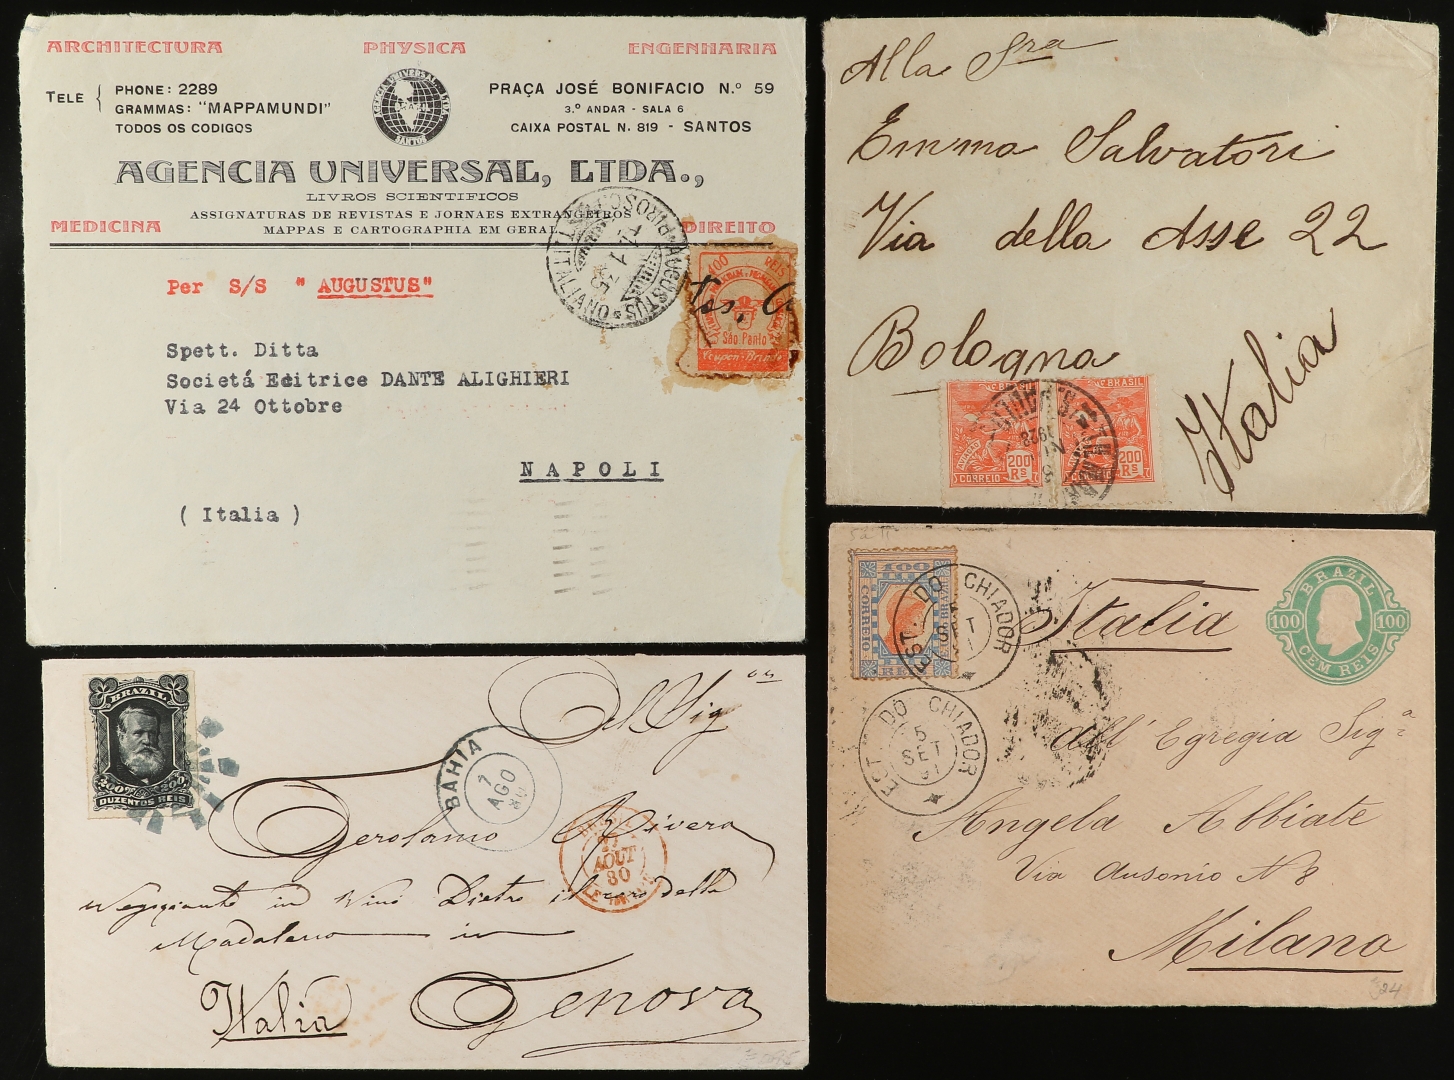 ARCHITECTURA PHYSICA ENGENHARIA
TELE { PHONE: 2289
GRAMMAS: "MAPPAMUNDI"
TODOS OS CODIGOS
PRAÇA JOSÉ BONIFACIO N.º 59
3.º ANDAR - SALA 6
CAIXA POSTAL N. 819 - SANTOS
AGENCIA UNIVERSAL, LTDA.,
LIVROS SCIENTIFICOS
ASSIGNATURAS DE REVISTAS E JORNAES EXTRANGEIROS
MAPPAS E CARTOGRAPHIA EM GERAL
MEDICINA DIREITO
Per S/S "AUGUSTUS"
AUGUSTUS
ITALIANO
1 35
400 REIS
São Paulo
Coupon-Brinde
Spett. Ditta
Societá Editrice DANTE ALIGHIERI
Via 24 Ottobre
NAPOLI
( Italia )
Alla Sra
Emma Salvatori
Via della Asse 22
Bologna
Italia
BRASIL
AVIAÇÃO
200 RS
CORREIO
BRASIL
200 RS
CORREIO
1928
BRAZIL
200 200
DUZENTOS REIS
Del Sig
BAHIA
7
AGO
80
Gerolamo Rivera
AOUT
80
Negoziante in Vini Dietro il coro della
Madalena in
Italia Genova
100
CORREIO
EST. DO CHIADOR
SET
Italia
BRAZIL
100 100
CEM REIS
EST. DO CHIADOR
15
SET
91
All' Egregia Sigª
Angela Abbiate
Via Ausonio N 8
Milano